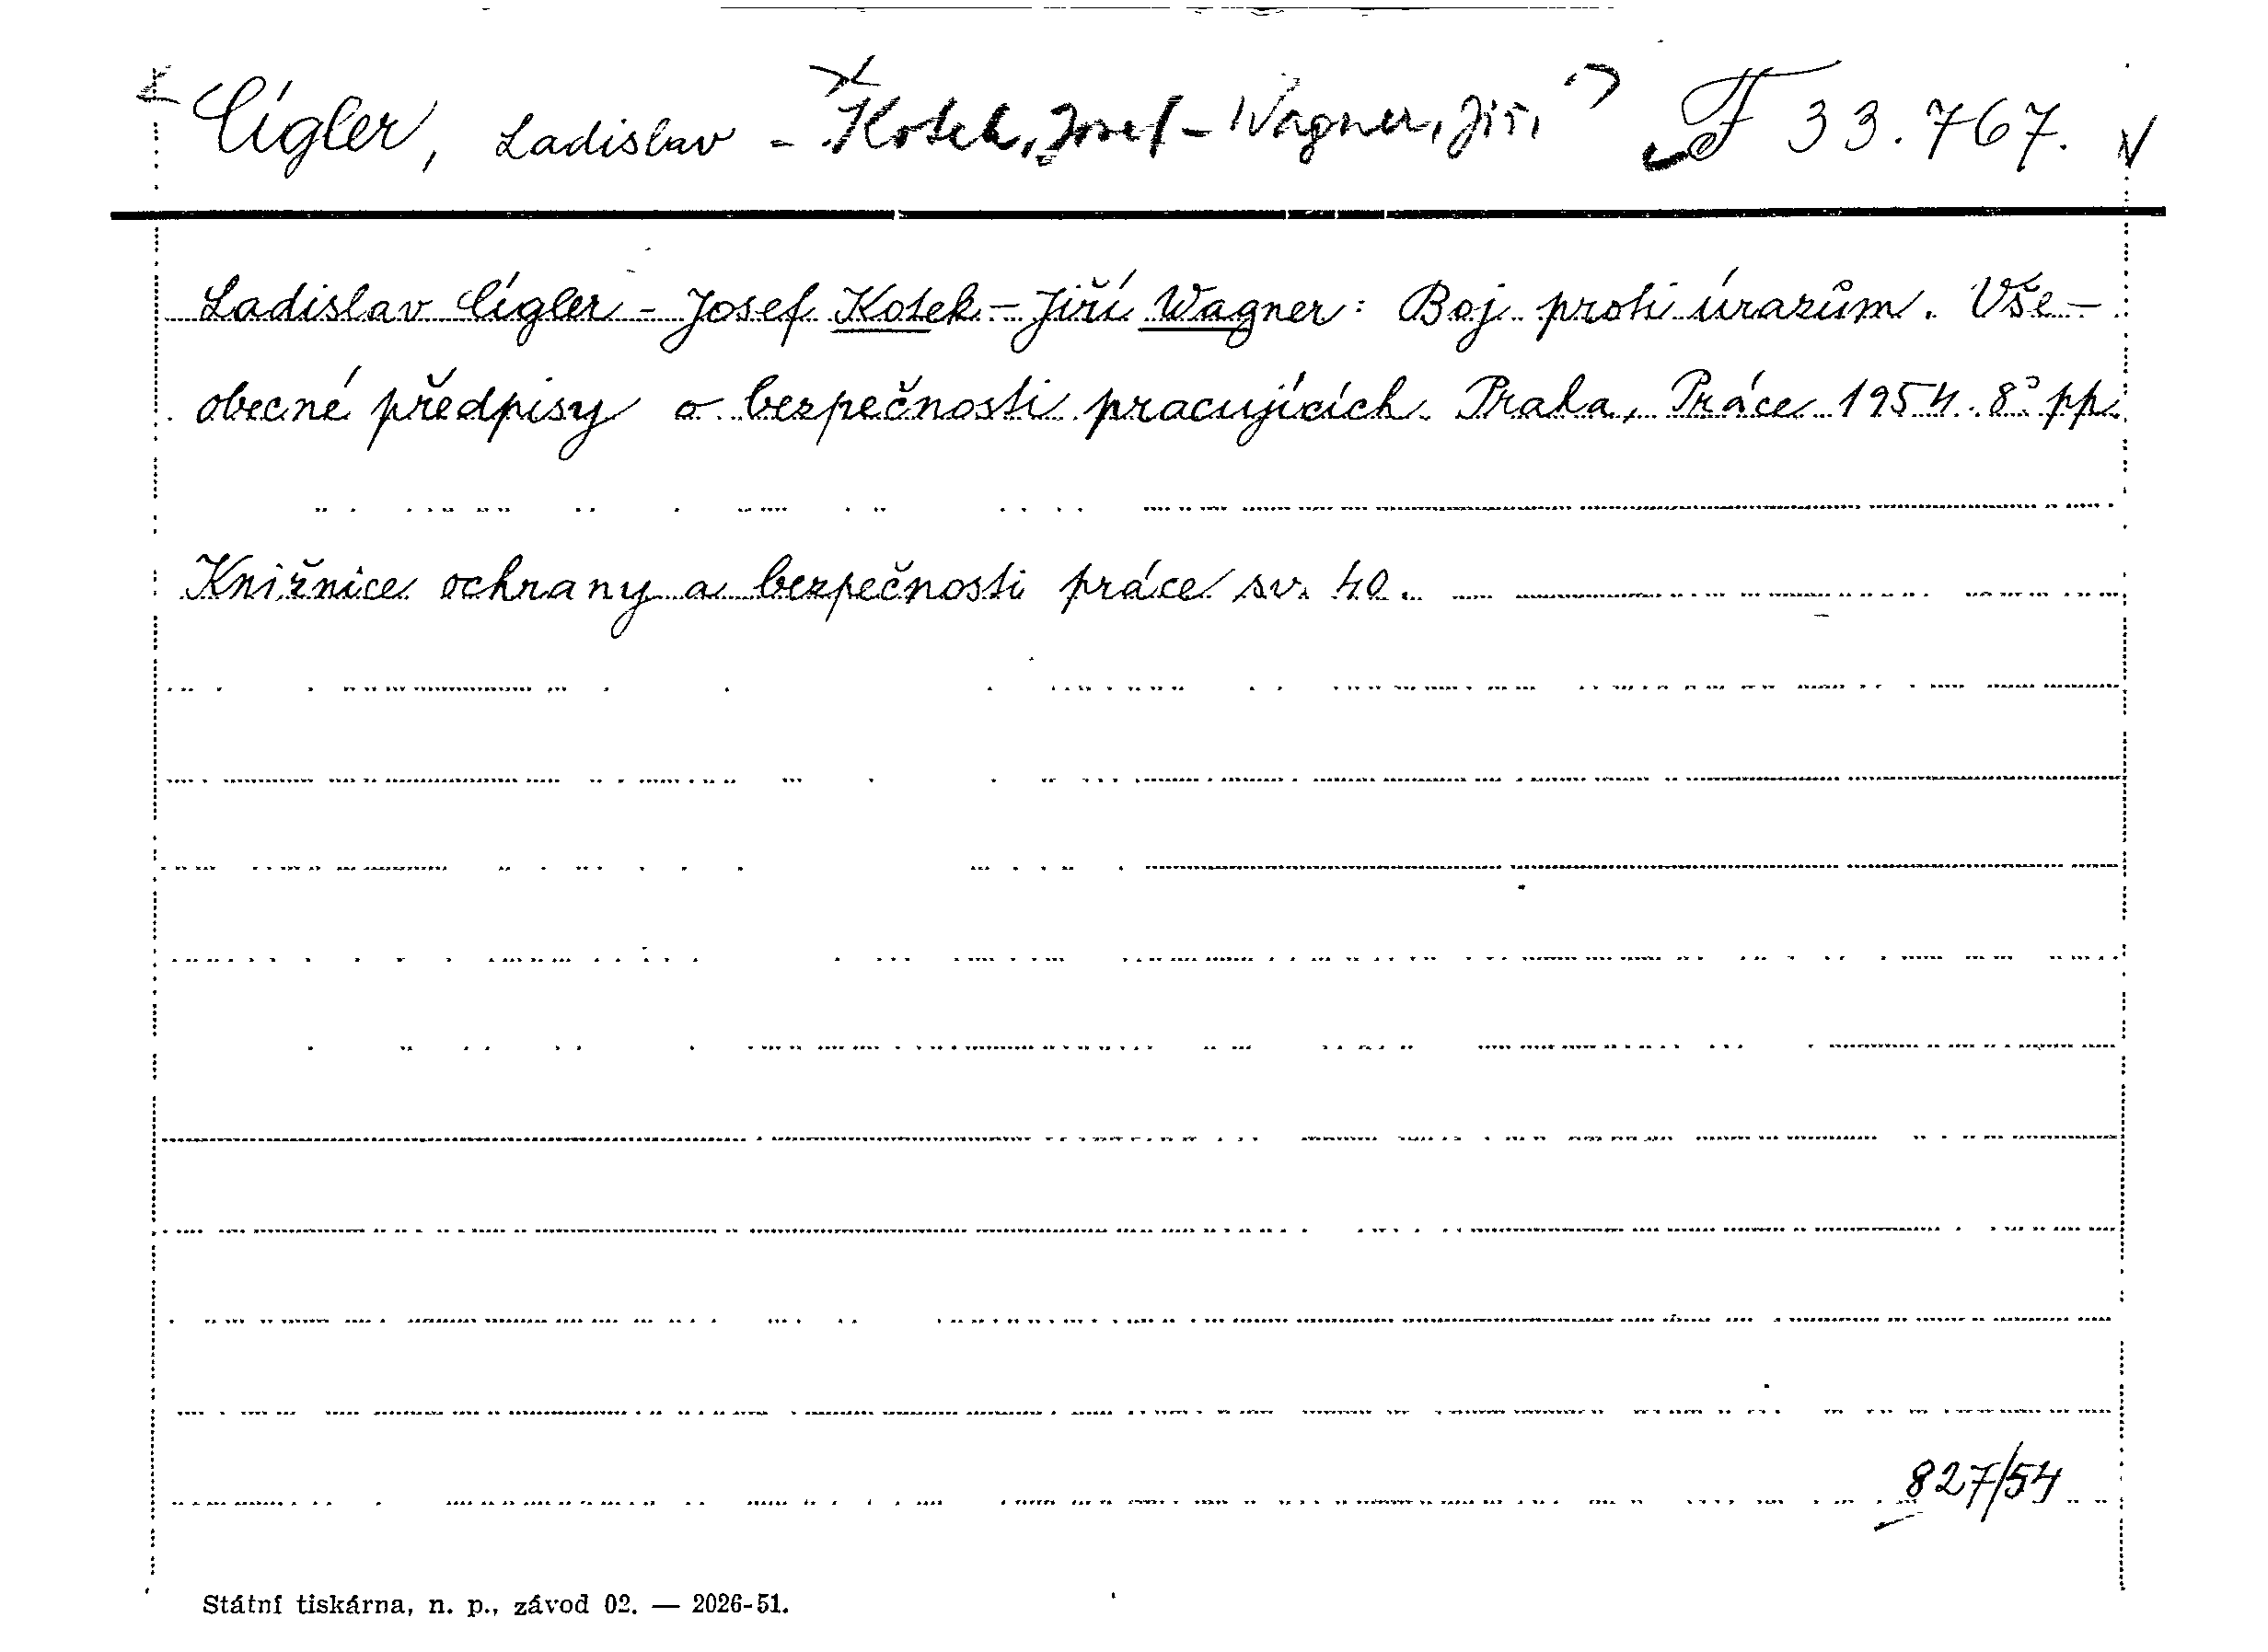 Cígler, Ladislav - Kotek, Josef - Wagner, Jiří F 33.767.
Ladislav Cígler - Josef Kotek - Jiří Wagner: Boj proti úrazům. Vše-
obecné předpisy o bezpečnosti pracujících. Praha, Práce 1954. 8° pp.
Knižnice ochrany a bezpečnosti práce sv. 40.
827/54
Státní tiskárna, n. p., závod 02. — 2026-51.